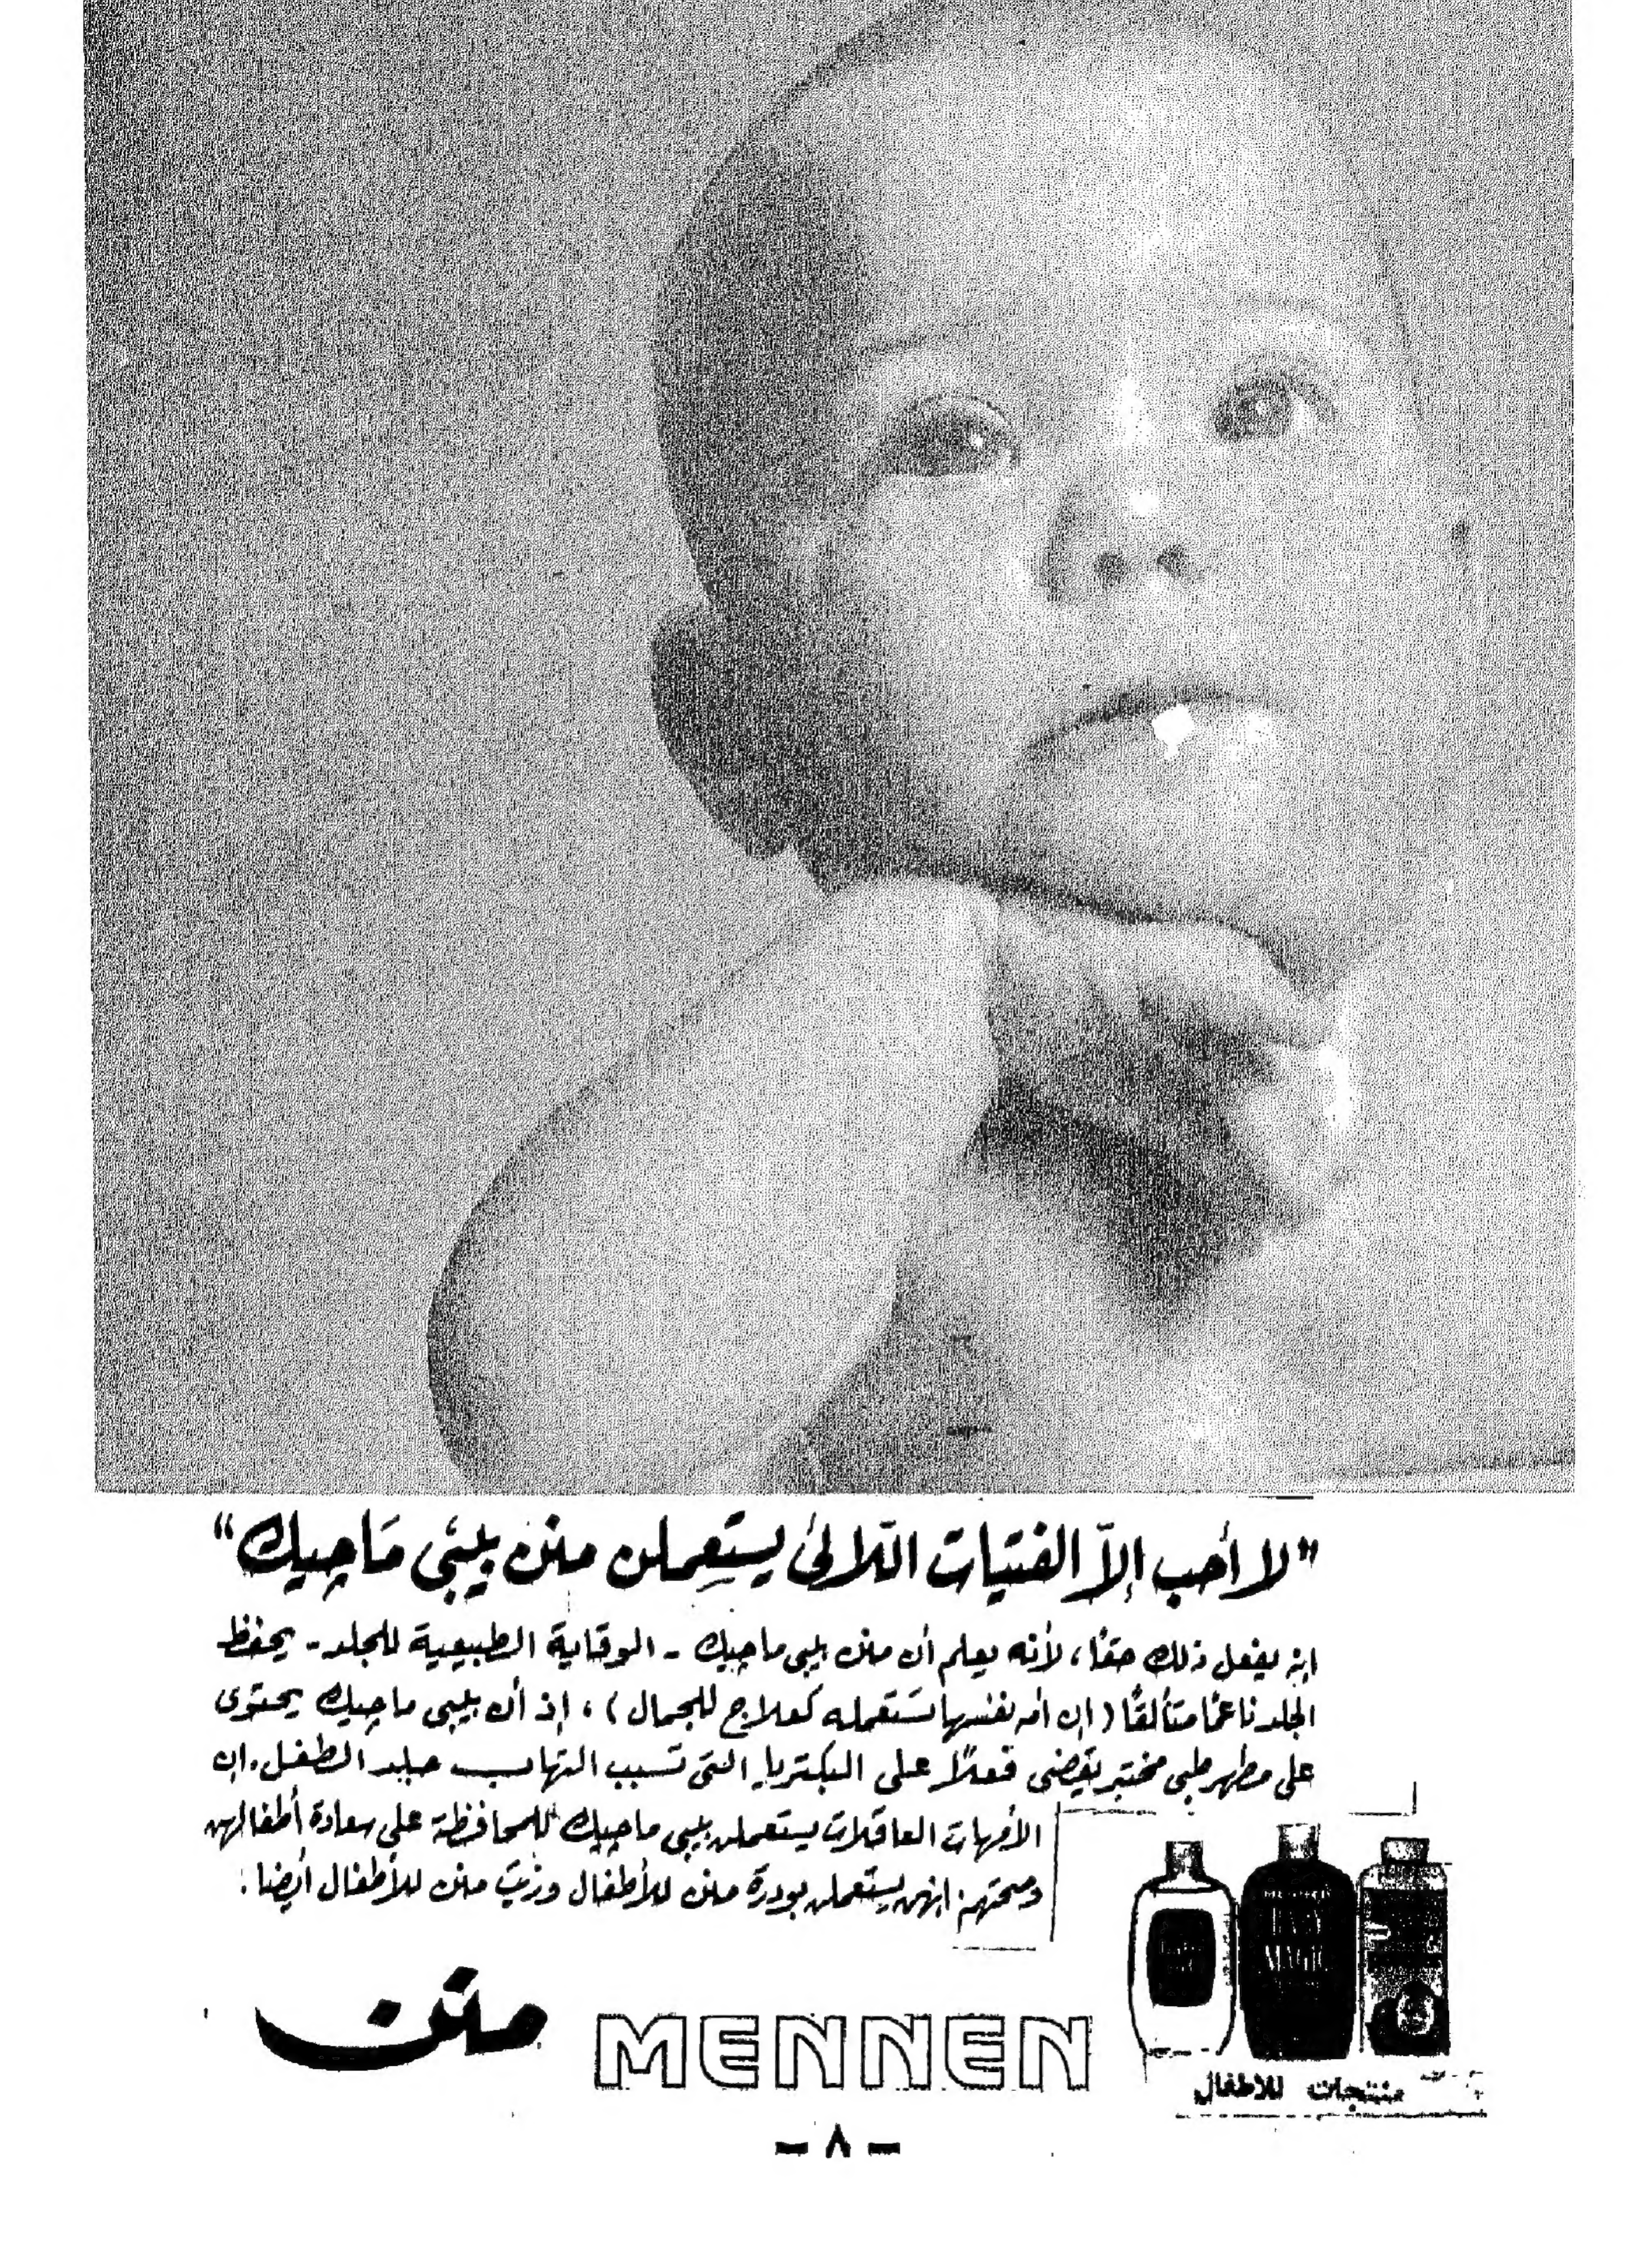 "لا أحب إلاّ الفتيات اللّائى يستعملن منن بيبى ماچيك"
انه يفعل ذلك حقًا، لأنه يعلم أن منن بيبى ماچيك - الوقاية الطبيعية للجلد - يحفظ
الجلد ناعمًا متألقًا (ان أمه نفسها تستعمله كعلاج للجمال)، إذ أن بيبى ماچيك يحتوى
على مطهر طبى مختبر يقضى فعلاً على البكتريا التى تسبب التهاب جلد الطفل. ان
الأمهات العاقلات يستعملن بيبى ماچيك للمحافظة على سعادة أطفالهن
وصحتهم. انهن يستعملن بودرة منن للأطفال وزيت منن للأطفال أيضا.
BABY
MAGIC
منن MENNEN
منتجات للاطفال
- ٨ -